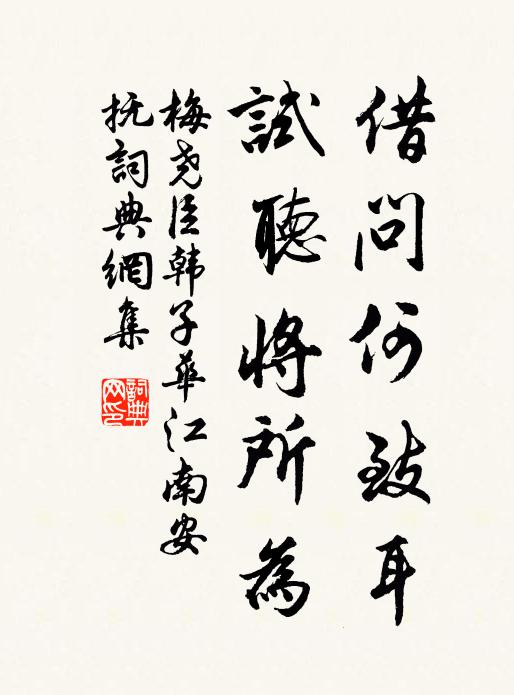 借问何致耳
試聽將所為
梅尧臣韩子華江南安
抚詞典網集
詞典
网印